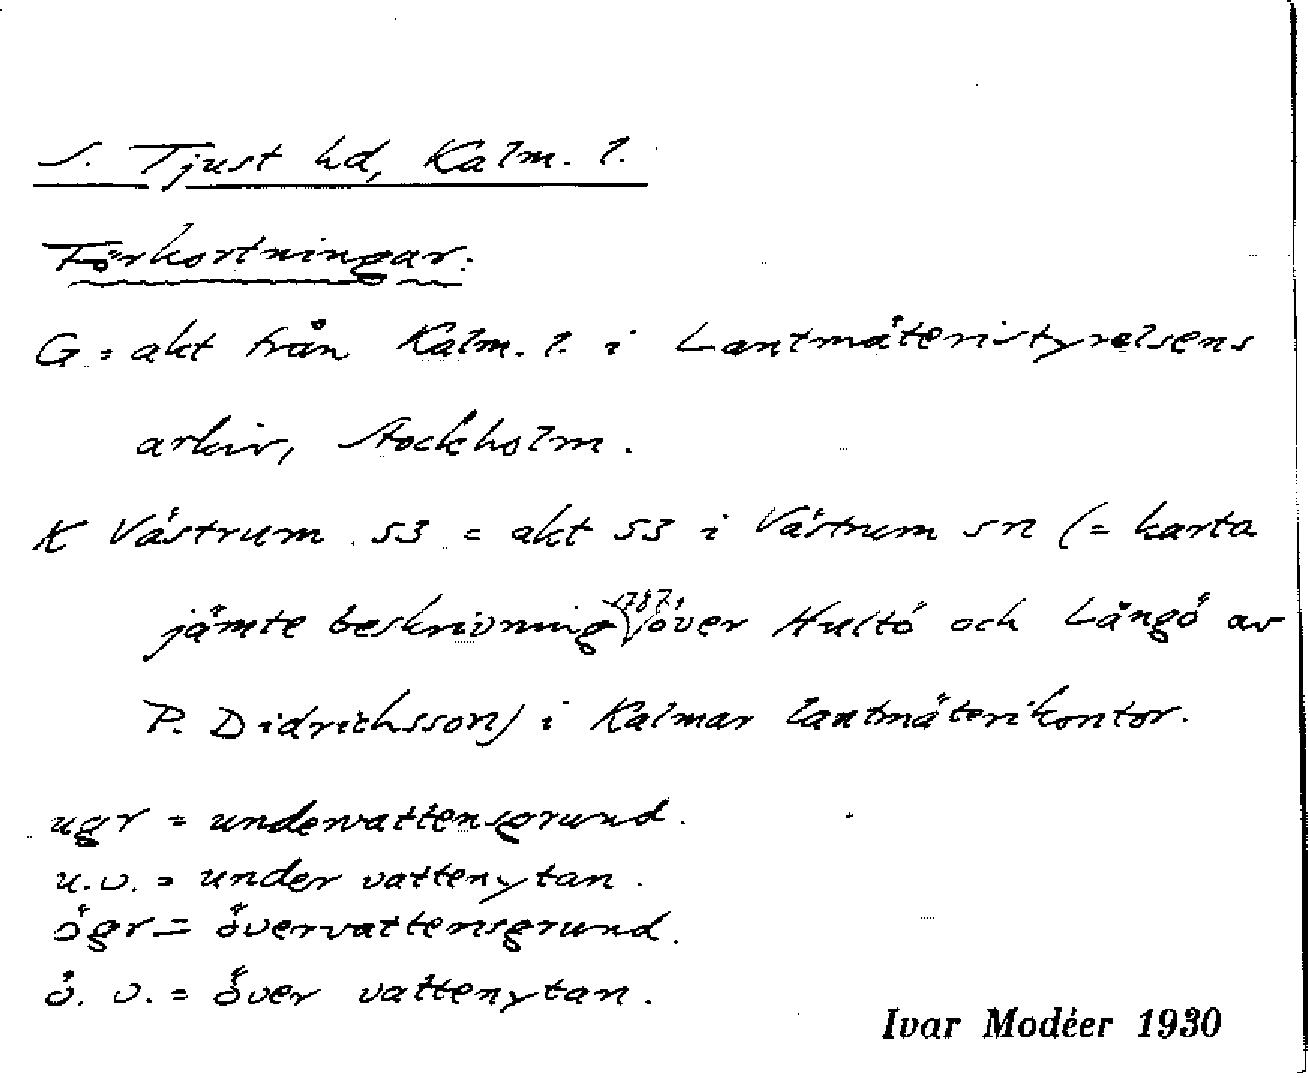 S. Tjust hd, Kalm. l.
Förkortningar:
G = akt från Kalm. l. i Lantmäteristyrelsens
arkiv, Stockholm.
K Västrum 53 = akt 53 i Västrum sn (= karta
jämte beskrivning 1787, över Hultö och Långö av
P. Didrichsson) i Kalmar lantmäterikontor.
ugr = undervattensgrund.
u.v. = under vattenytan.
ögr = övervattensgrund.
ö. v. = över vattenytan.
Ivar Modéer 1930